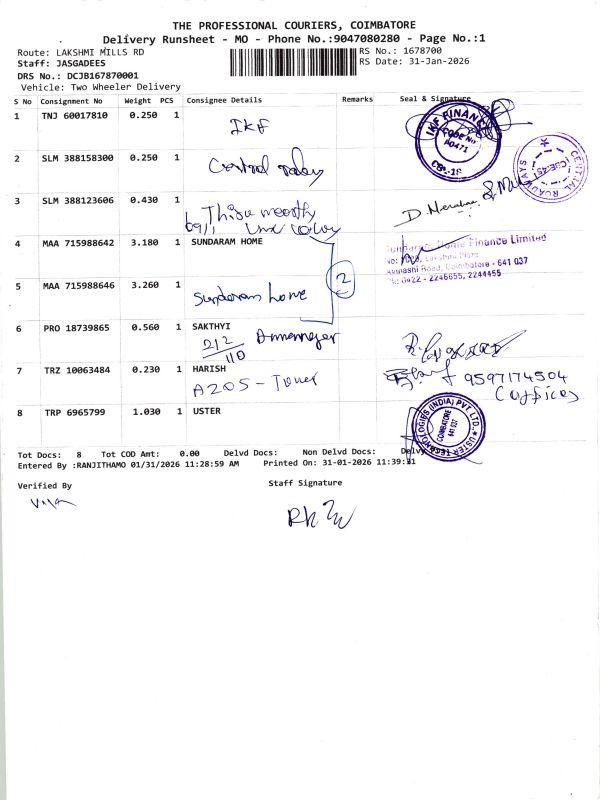 THE PROFESSIONAL COURIERS, COIMBATORE
Delivery Runsheet - MO - Phone No.:9047080280 - Page No.:1
Route: LAKSHMI MILLS RD
RS No.: 1678700
Staff: JASGADEES
RS Date: 31-Jan-2026
DRS No.: DCJB167870001
Vehicle: Two Wheeler Delivery
S No Consignment No Weight PCS Consignee Details Remarks Seal & Signature
1 TNJ 60017810 0.250 1 IKF
IKF FINANCE
CODE No.
A0471
CBE-18
2 SLM 388158300 0.250 1 Central
CENTRAL ROADWAYS
3 SLM 388123606 0.430 1
4 MAA 715988642 3.180 1 SUNDARAM HOME
Home Finance Limited
Avinashi Road, Coimbatore - 641 037
Ph: 0422 - 2246655, 2244455
2
5 MAA 715988646 3.260 1 Sundaram home
6 PRO 18739865 0.560 1 SAKTHYI
212
110
7 TRZ 10063484 0.230 1 HARISH
A205 - Tower
9597174504
8 TRP 6965799 1.030 1 USTER
USTER TECHNOLOGIES (INDIA) PVT LTD.
COIMBATORE
641 037
Tot Docs: 8 Tot COD Amt: 0.00 Delvd Docs: Non Delvd Docs:
Entered By :RANJITHAMO 01/31/2026 11:28:59 AM Printed On: 31-01-2026 11:39:31
Verified By
Staff Signature